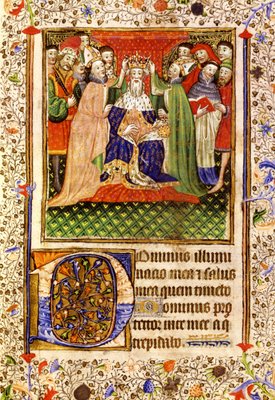 Dominus illumi
natio mea ⁊ salus
mea quem timebo
Dominus pro
tector vite mee a q
trepidabo